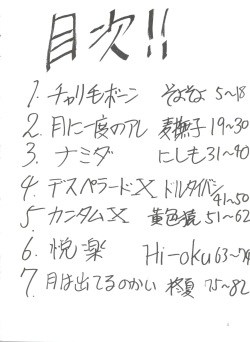 目次!!
1. チャリ毛ボーン そよそよ 5~18
2. 月に一度のアレ 麦撫子 19~30
3. ナミダ にしも 31~40
4. デスペラードX ドルタイバン 41~50
5 カンタムX 黄色猿 51~62
6. 悦楽 Hi-oku 63~74
7. 月は出てるのかい 75~82